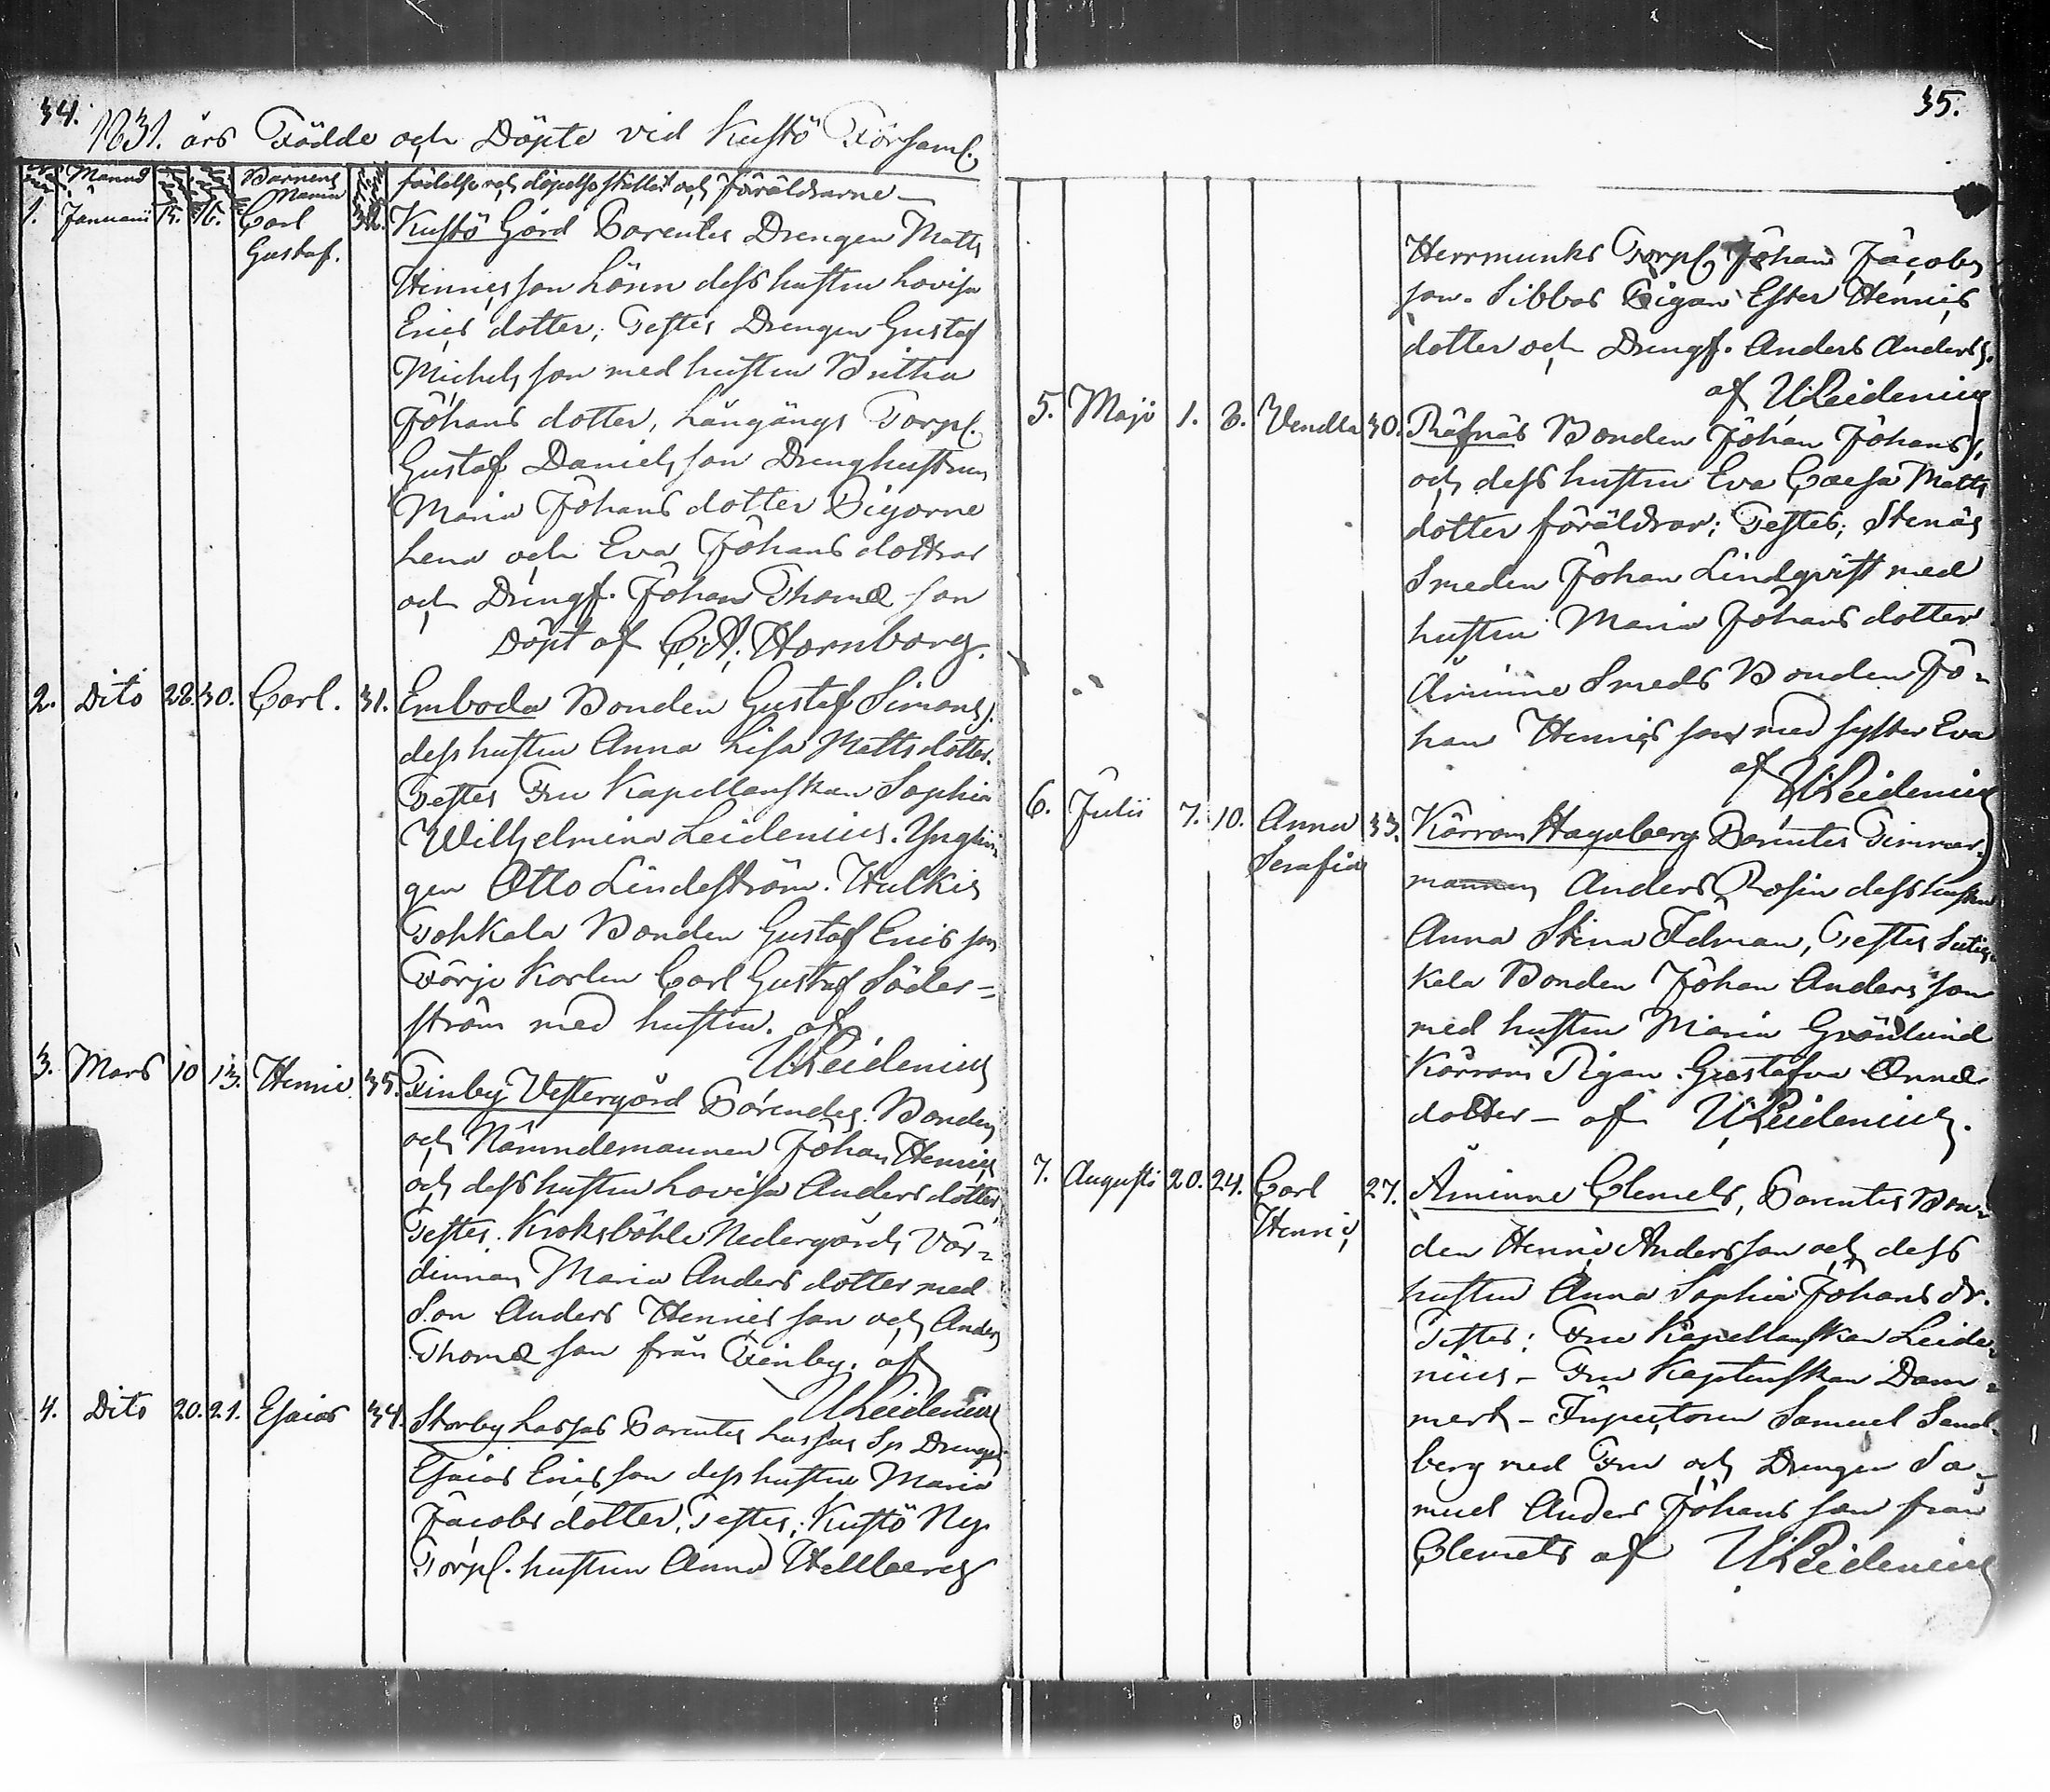 34.
1831. års Födde och Döpte vid Kustö Församl.
Månad Barnens Namn födelse och döpelse stället och föräldrarne
1. Januarii 15. 16. Carl Gustaf. 32. Kustö Gård Parentes Drengen Matts
Henricsson Lönn dess hustru Lovisa
Erics dotter; Testes Drengen Gustaf
Michelsson med hustru Britha
Johans dotter, Långängs Torpf.
Gustaf Danielsson Dreng hustrun
Maria Johans dotter Pigorne
Lena och Eva Johans dottrar
och Drengf. Johan Thomæ son
Döpt af C. A. Hornborg.
2. Dito 28. 30. Carl. 31. Emboda Bonden Gustaf Simons.
dess hustru Anna Lisa Mattsdotter.
Testes Fru Kapellanskan Sophia
Wilhelmina Leidenius. Ynglin-
gen Otto Lindeström. Hulkis
Tohkala Bonden Gustaf Erics son
Färje Karlen Carl Gustaf Söder-
ström med hustru. af
U Leidenius
3. Mars 10 13. Henric 35. Finby Vestergård Parendes. Bonden
och Nämndemannen Johan Henrics
och dess hustru Lovisa Anders dotter,
Testes. Kroksböhle Nedergårds Vär-
dinnan Maria Anders dotter med
Son Anders Henrics son och Anders
Thomæ son från Finby. af
U Leidenius
4. Dito 20. 21. Esaias 34. Storby Lassas Parentes Lassas Sp Drengen
Esaias Ericsson dess hustru Maria
Jacobs dotter, Testes; Kustö Ny
Torpf. hustrun Anna Hellberg
35.
Herrmunks Torpf, Johan Jacobs
son. Sibbas Pigan Ester Henrics
dotter och Drengf. Anders Anderss.
af U Leidenius
5. Maji 1. 8. Vendla 30. Räfnäs Bonden Johan Johans),
och dess hustru Eva Caisa Matts
dotter föräldrar; Testes; Stenäs
Smeden Johan Lindqvist med
hustru Maria Johans dotter
Åminne Smeds Bonden Jo-
han Henrics son med syster Eva
af U Leidenius
6. Julii 7. 10. Anna Serafia 33. Kärram Hagaberg Parentes Timmer-
mannen Anders Rosin dess hustru
Anna Stina Idman, Testes
kala Bonden Johan Anders son
med hustru Maria Grönlund
Kärram Pigan. Gustafva Annæ
dotter - af U Leidenius.
7. Augusti 20. 24. Carl Henric, 27. Åminne Clemets, Parentes Bon-
den Henric Andersson och dess
hustru Anna Sophia Johans dr.
Testes: Fru Kapellanskan Leide-
nius - Fru Kaptenskan Dam-
mert - Inspectoren Samuel Sand-
berg med Fru och Drengen Sa-
muel Anders Johans son från
Clemets af U Leidenius